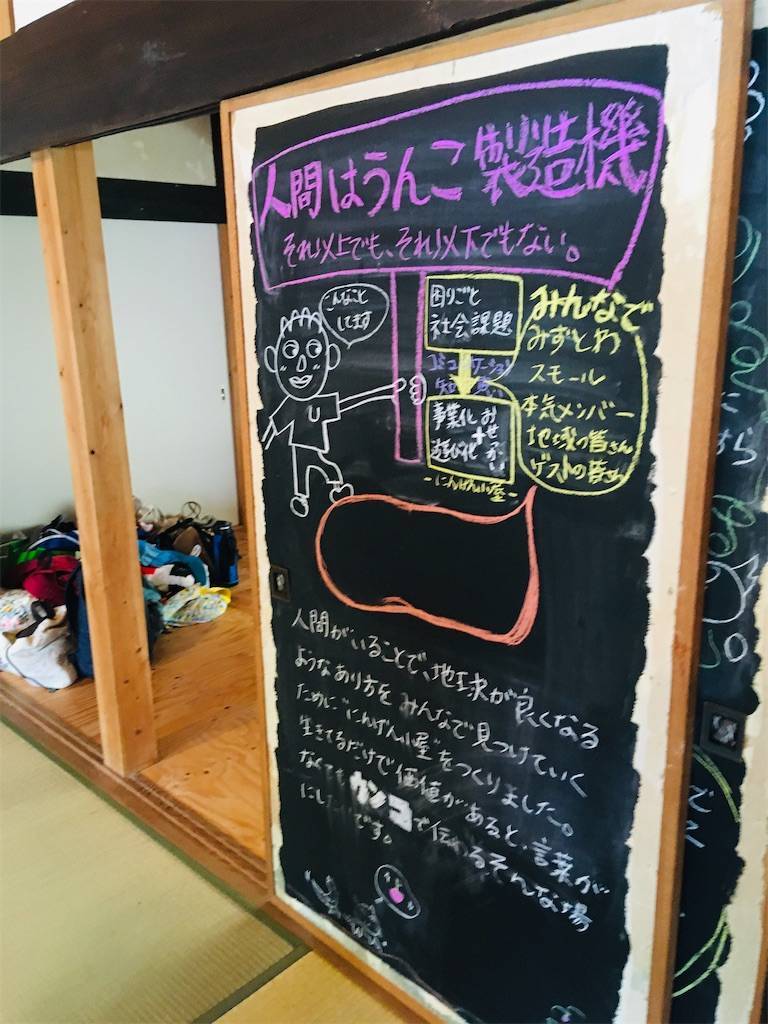 人間はうんこ製造機
それ以上でも、それ以下でもない。
こんなこと
してます
U
困りごと
社会課題
コミュニケーション
事業化
+
遊び化
おせっかい
-にんげん小屋-
みんなで
みずとわ
スモール
本気メンバー
地域の皆さん
ゲストの皆さん
人間がいることで、地球が良くなる
ようなあり方をみんなで見つけていく
ために"にんげん小屋"をつくりました。
生きてるだけで価値があると、言葉が
なくてもウンコで伝わるそんな場
にしたいです。